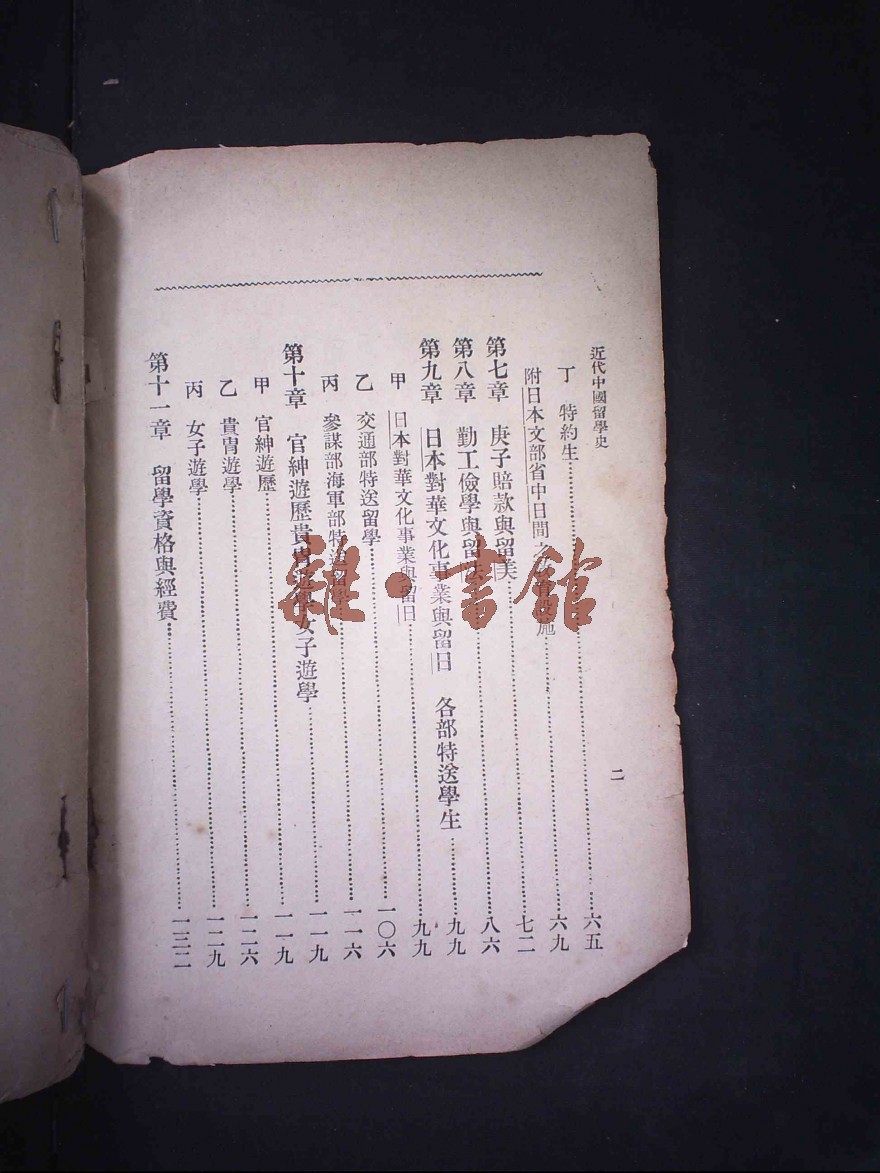 近代中國留學史 二
丁 特約生……六五
附日本文部省中日間之教育設施……六九
第七章 庚子賠款與留美……七二
第八章 勤工儉學與留法……八六
第九章 日本對華文化事業與留日 各部特送學生……九九
甲 日本對華文化事業與留日……九九
乙 交通部特送留學……一〇六
丙 參謀部海軍部特送留學……一一六
第十章 官紳遊歷貴冑遊學女子遊學……一一九
甲 官紳遊歷……一一九
乙 貴冑遊學……一二六
丙 女子遊學……一二九
第十一章 留學資格與經費……一三二
雜·書館